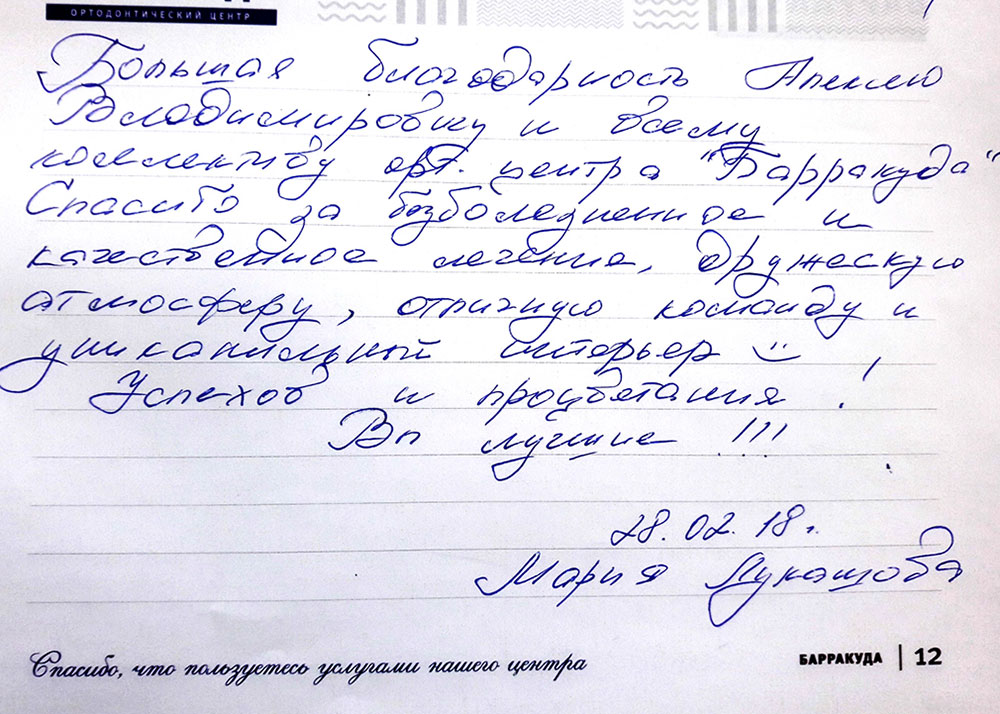 ОРТОДОНТИЧЕСКИЙ ЦЕНТР
Большая благодарность Алексею
Владимировичу и всему
коллективу орт. центра "Барракуда"
Спасибо за безболезненное и
качественное лечение, дружескую
атмосферу, отличную команду и
уникальный интерьер !
Успехов и процветания !
Вы лучшие !!!
28.02.18г.
Мария Лукашова
Спасибо, что пользуетесь услугами нашего центра
БАРРАКУДА | 12